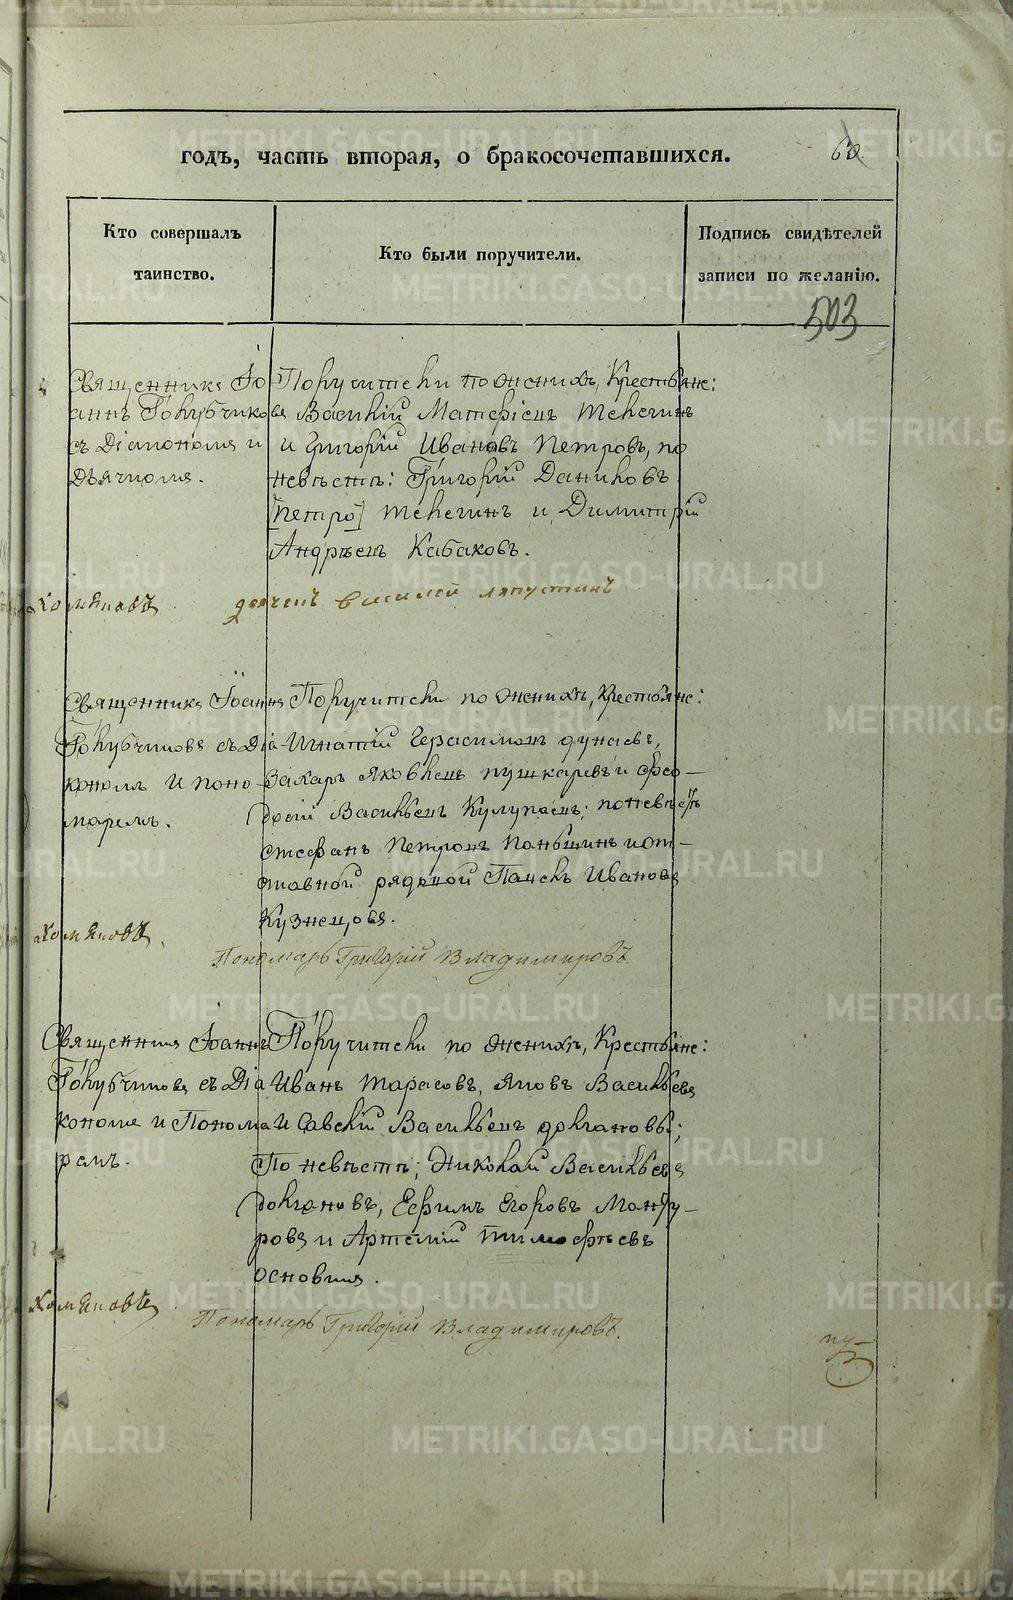 годъ, часть вторая, о бракосочетавшихся.
60
Кто совершалъ
таинство.
Кто были поручители.
Подпись свидѣтелей
записи по желанію.
503
Священникъ Іо
аннъ Голубчиковъ
съ Діакономъ и
Дьячкомъ.
Поручители по женихѣ, Крестьяне:
Василий Матфіевъ Телегинъ
и Григорій Ивановъ Петровъ, по
невѣстѣ: Григорій Даниловъ
[Петро] Телегинъ и Димитрій
Андрѣевъ Кабаковъ.
Хомяковъ
дьячекъ Василей Ляпустинъ
Священникъ Іоаннъ
Голубчиковъ съ Діа
кономъ и поно
маремъ.
Поручители по женихѣ, Крестьяне:
Игнатій Герасимовъ Дунаевъ,
Захаръ Яковлевъ Пушкаревъ и Фео-
досій Васильевъ; по невѣстѣ
Стефанъ Петровъ Паньшинъ и от-
ставной рядовой Павелъ Ивановъ
Кузнецовъ.
Хомяковъ
Пономарь Григорий Владимировъ
Священникъ Іоаннъ
Голубчиковъ съ Діа
кономъ и Понома
ремъ.
Поручители по женихѣ, Крестьяне:
Иванъ Тарасовъ, Яковъ Васильевъ
и Савелій Васильевъ Долгановы;
По невѣстѣ; Николай Васильевъ
Долгановъ, Ефимъ Егоровъ Манту-
ровъ и Артемій Тимофѣевъ
Хомяковъ
Пономарь Григорий Владимировъ.
METRIKI.GASO-URAL.RU